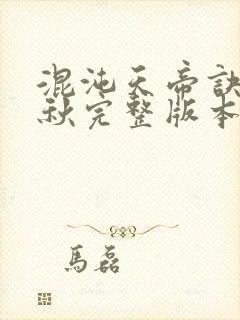 混沌天帝訣
秋完整版本
馬磊